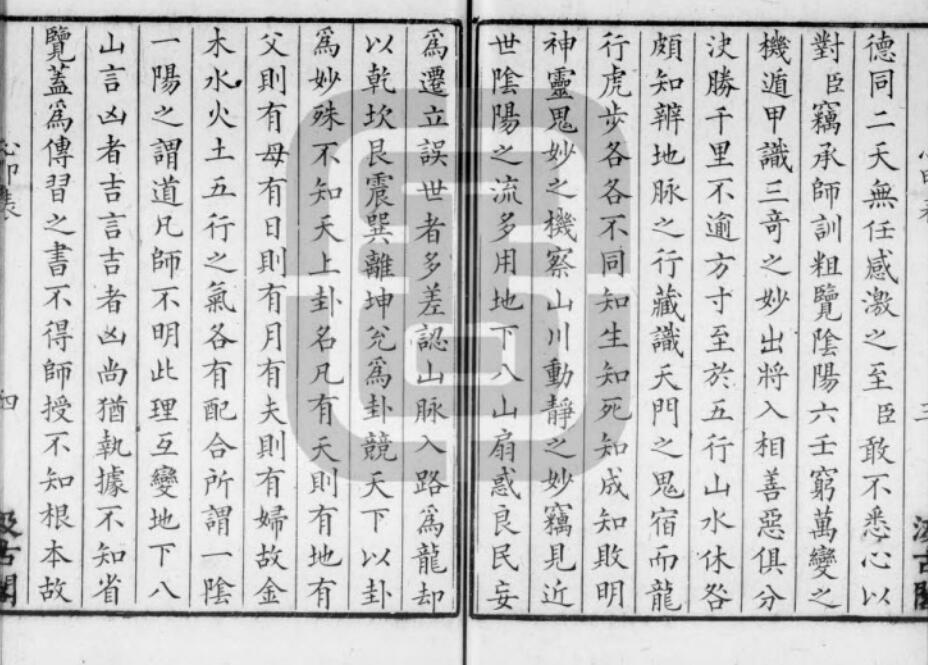 德同二天無任感激之至臣敢不悉心以
對臣竊承師訓粗覽陰陽六壬窮萬變之
機遁甲識三竒之妙出將入相善惡俱分
决勝千里不逾方寸至於五行山水休咎
頗知辨地脉之行藏識天門之鬼宿而龍
行虎步各各不同知生知死知成知敗明
神靈鬼妙之機察山川動靜之妙竊見近
世隂陽之流多用地下八山扇惑良民妄
爲遷立誤世者多差認山脉入路爲龍却
以乾坎艮震巽離坤兊爲卦競天下以卦
爲妙殊不知天上卦名凡有天則有地有
父則有母有日則有月有夫則有婦故金
木水火土五行之氣各有配合所謂一隂
一陽之謂道凡師不明此理互變地下八
山言凶者吉言吉者凶尚猶執據不知省
覽蓋爲傳習之書不得師授不知根本故
四
三
汲古閣
汲古閣